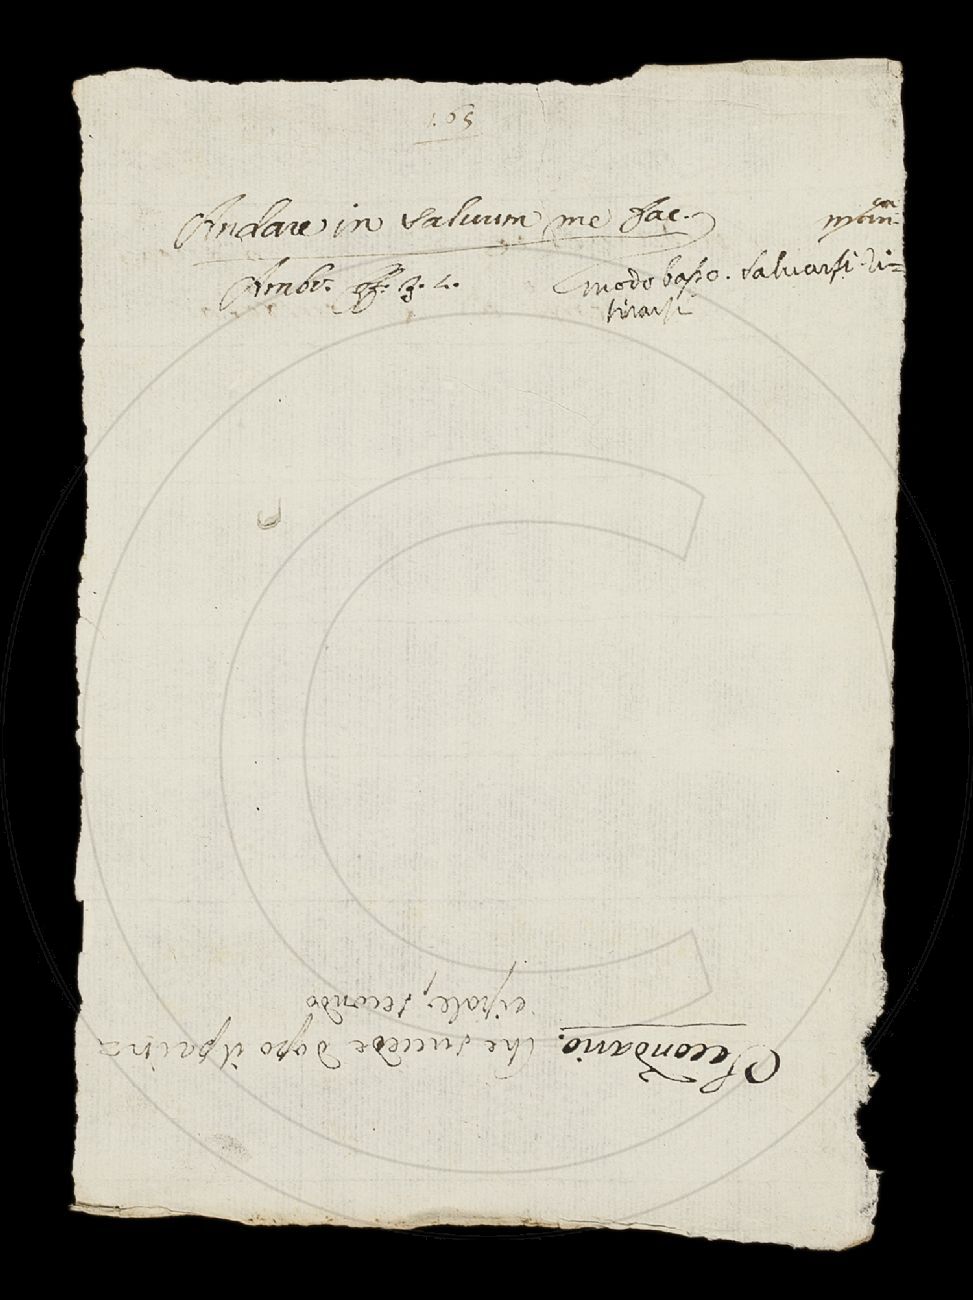 1.63
Andare in saluum me fac.
Ambr. off. 3. 2.
modo basso. Saluarsi. Ri=
tirarsi
Secondario. Che succede dopo il prin=
cipale, secondo